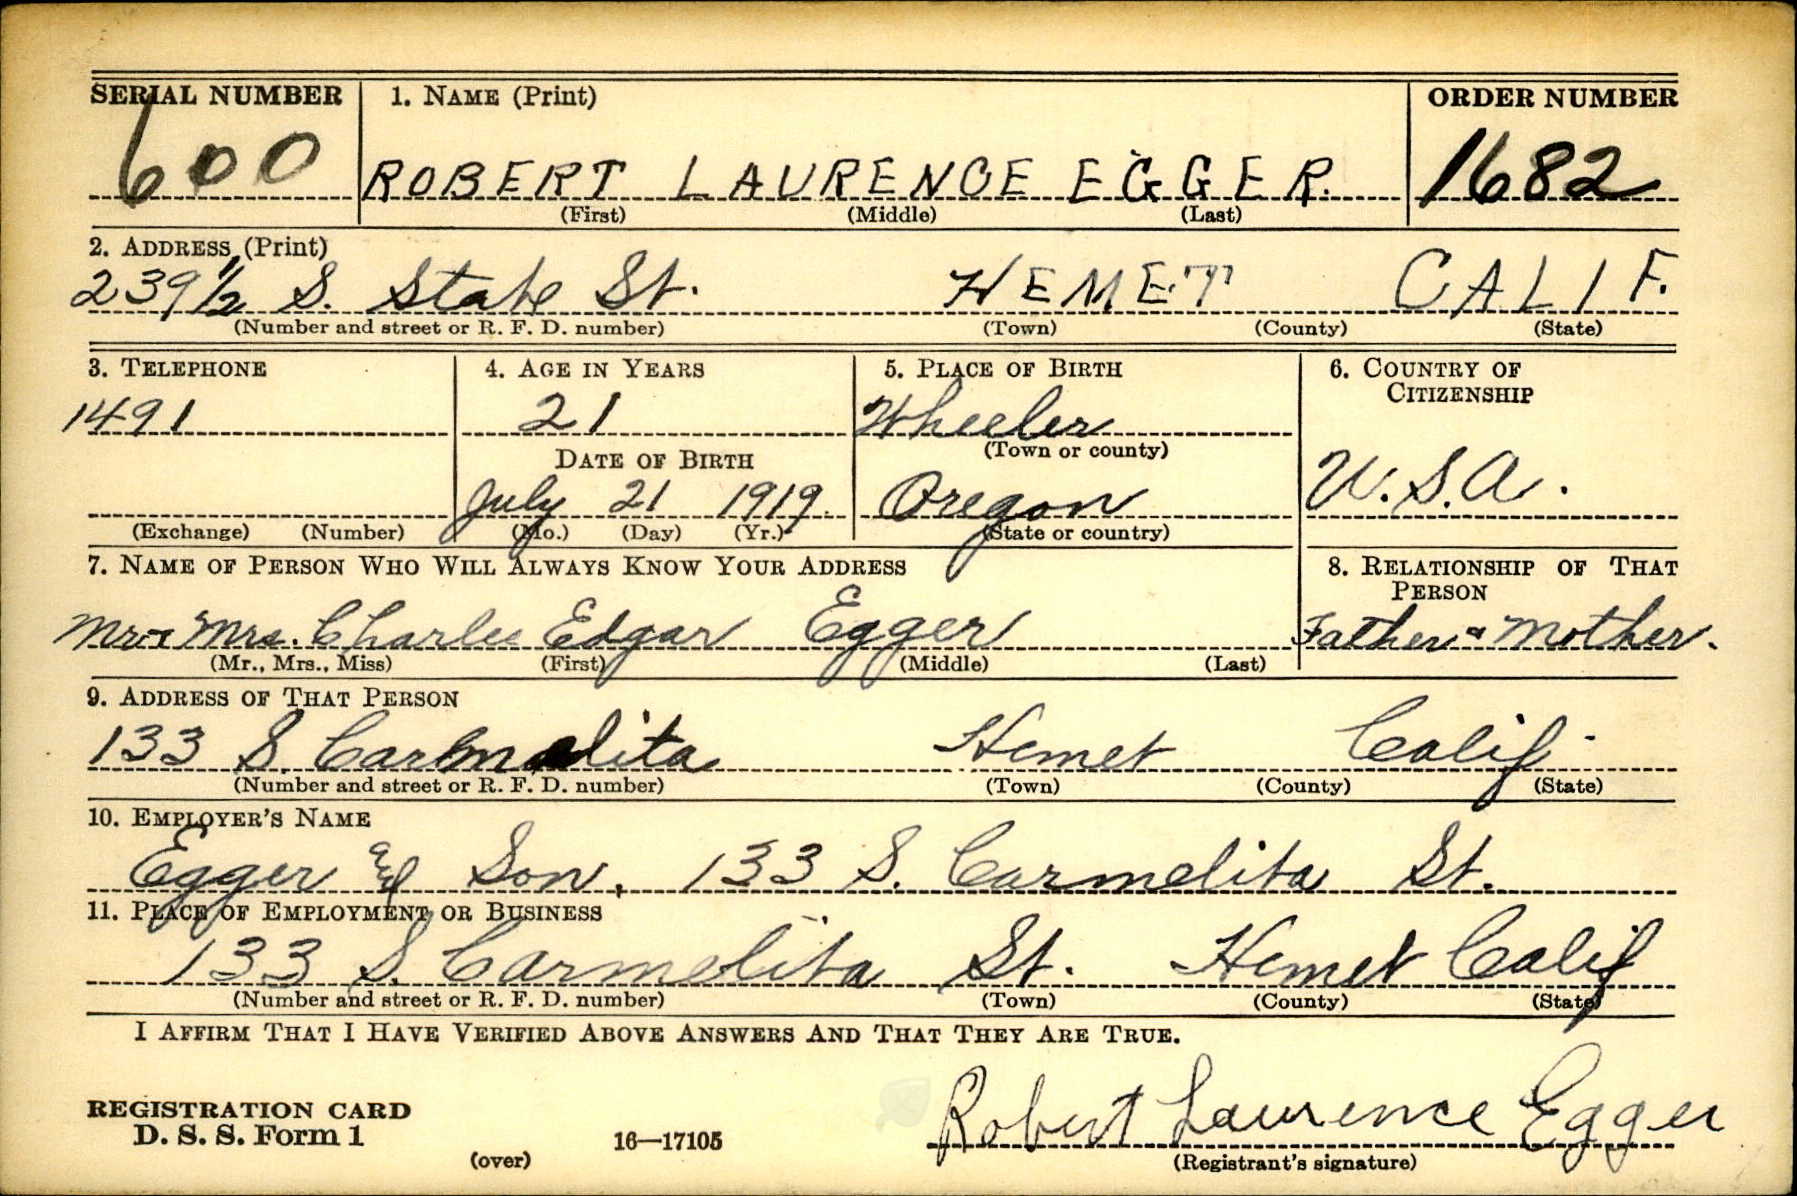 SERIAL NUMBER 1. NAME (Print) ORDER NUMBER
600 ROBERT LAURENCE EGGER. 1682
(First) (Middle) (Last)
2. ADDRESS (Print)
239 1/2 S. State St. HEMET CALIF.
(Number and street or R. F. D. number) (Town) (County) (State)
3. TELEPHONE 4. AGE IN YEARS 5. PLACE OF BIRTH 6. COUNTRY OF
CITIZENSHIP
1491 21 Wheeler
(Town or county)
DATE OF BIRTH
July 21 1919. Oregon U.S.A.
(Exchange) (Number) (Mo.) (Day) (Yr.) (State or country)
7. NAME OF PERSON WHO WILL ALWAYS KNOW YOUR ADDRESS 8. RELATIONSHIP OF THAT
PERSON
Mr & Mrs. Charlee Edgar Egger Father & Mother.
(Mr., Mrs., Miss) (First) (Middle) (Last)
9. ADDRESS OF THAT PERSON
133 S. Carmelita Hemet Calif
(Number and street or R. F. D. number) (Town) (County) (State)
10. EMPLOYER'S NAME
Egger and Son, 133 S. Carmelita St.
11. PLACE OF EMPLOYMENT OR BUSINESS
133 S. Carmelita St. Hemet Calif
(Number and street or R. F. D. number) (Town) (County) (State)
I AFFIRM THAT I HAVE VERIFIED ABOVE ANSWERS AND THAT THEY ARE TRUE.
REGISTRATION CARD
D. S. S. Form 1 16—17105 Robert Laurence Egger
(over) (Registrant's signature)